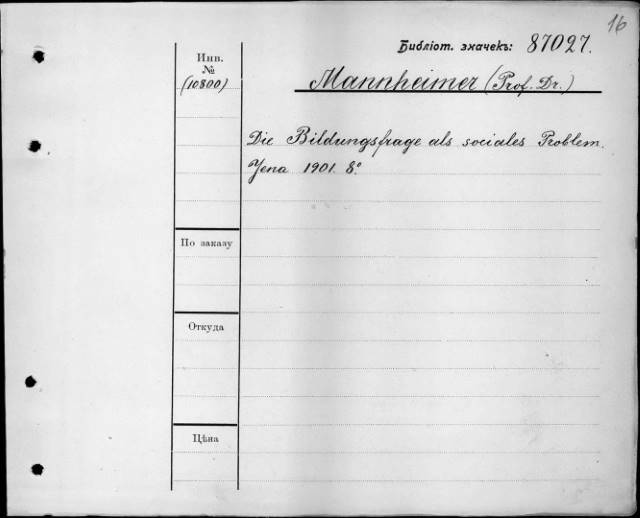 16
Библіот. значекъ: 87027.
Инв.
№
(10800)
Mannheimer (Prof. Dr.)
Die Bildungsfrage als sociales Problem.
Jena 1901. 8º
По заказу
Откуда
Цѣна